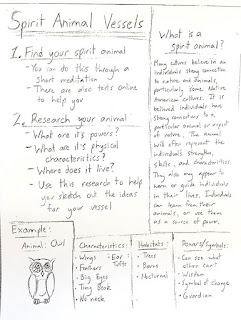 Spirit Animal Vessels
1. Find your spirit animal
- You can do this through a
short meditation
- There are also tests online
to help you
2. Research your animal
- What are it's powers?
- What are it's physical
characteristics?
- Where does it live?
- Use this research to help
you sketch out the ideas
for your vessel
What is a
spirit animal?
Many cultures believe in an
individuals strong connection
to nature and animals,
particularly some Native
American cultures. It is
believed individuals have
strong connections to a
particular animal or aspect
of nature. The animal
will often represent the
individual's strengths,
skills, and characteristics.
They also may appear to
warn or guide individuals
in their lives. Individuals
can learn from their
animals, or use them
as a source of power.
Example:
Animal: Owl
Characteristics:
• Wings • Ear Tufts
• Feathers
• Big Eyes
• Tiny Beak
• No neck
Habitats:
• Trees
• Barns
• Nocturnal
Powers/Symbols:
• Can see what
other can't
• Wisdom
• Symbol of change
• Guardian